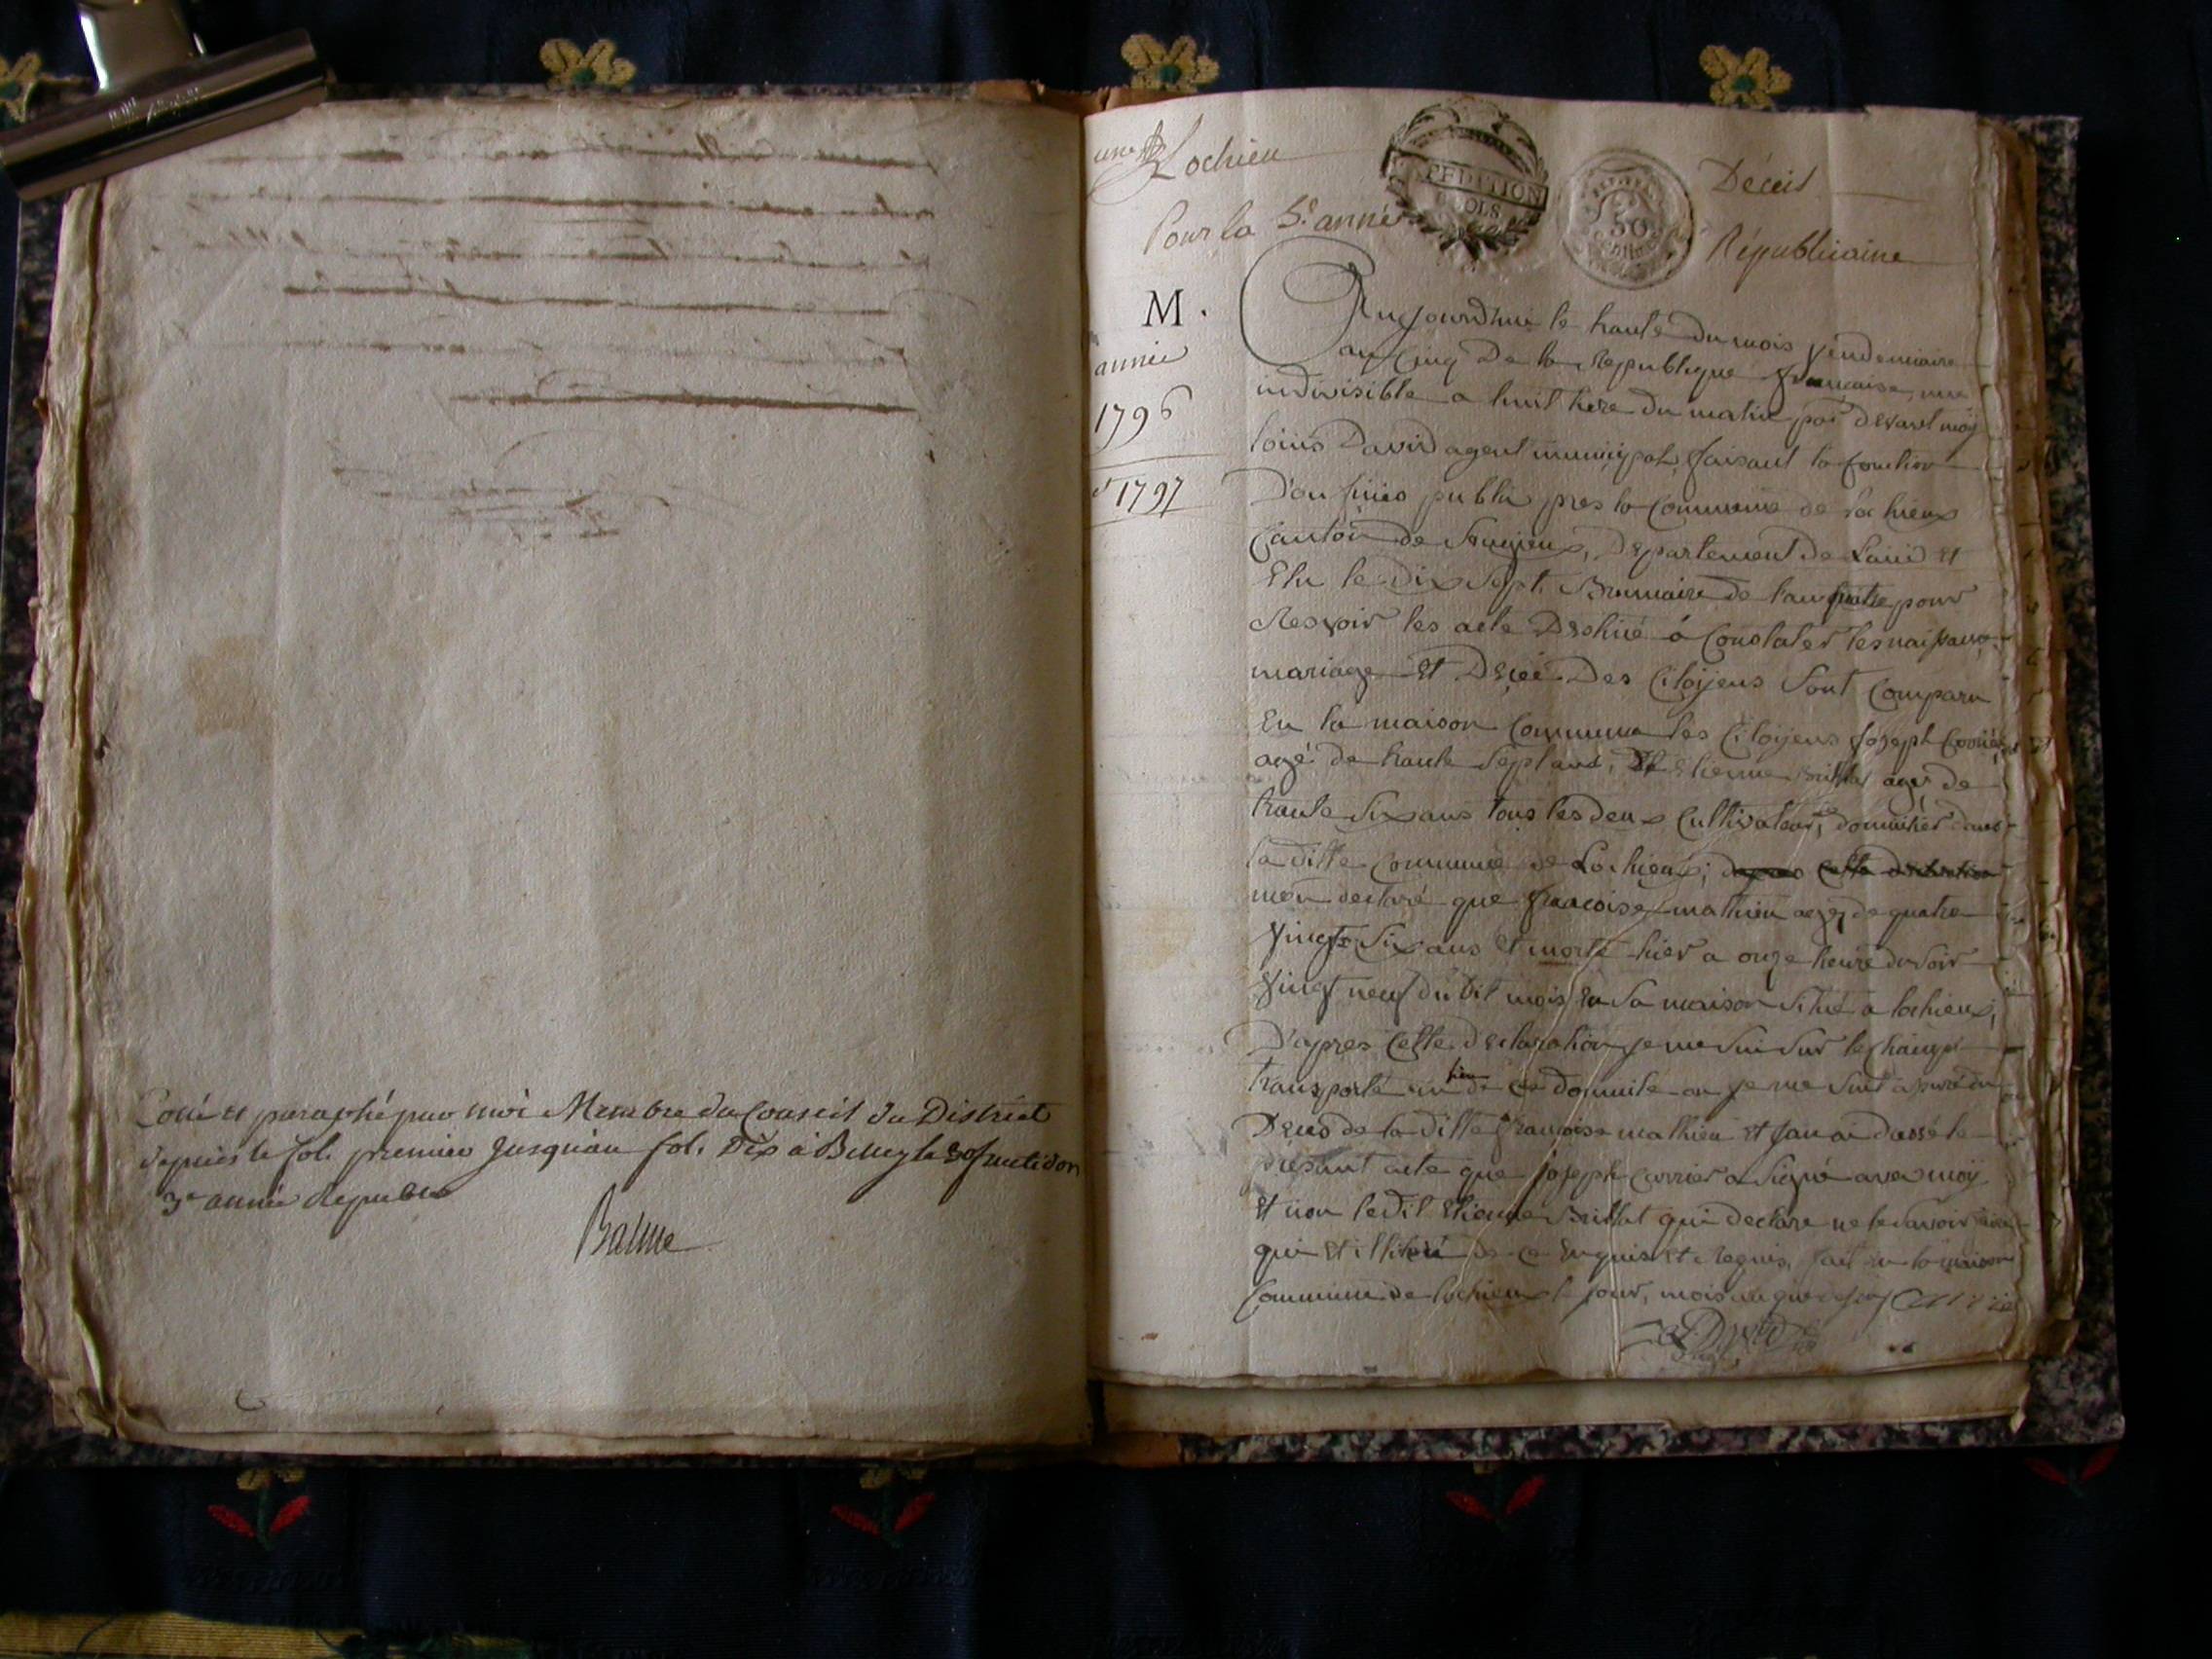 Coué et paraphé par moi Membre du Conseil du District
depuis le fol. premier jusqu'au fol. Dix à Belley le 30 fructidor
3e année Republ
Balme
Lochieu
Décès
Pour la 5e année
Républicaine
EXPEDITION
50
M.
année
1796
et 1797
Aujourdhui le trante du mois vendemiaire
an Cinq De la Republique francaise, une
indivisible a huit here du matin par devant moy
louis David agent municipal, faisant la fonction
D'oufficies public pres la Commune de Lochieux
Canton de Songieux, Departement de Lain et
Elu le Dix Sept Brumaire de l'an quatre pour
Resevoir les acte Destiné á Constater les naissance
mariage et Decée Des Citoijens Sont Comparu
En la maison Commune les Citoijens Joseph Carrier
agé de trante Sept ans, Et Etienne Brillat agés de
trante Six ans tous les deux Cultivateur, domicilies dans
la ditte Commune de Lochieux; dapres cette declaration
mon declaré que francoise mathieu agez de quatre
vingts Six ans et morte hier a onze heure du soir
vingt neuf du dit mois en Sa maison situé a lochieux,
D'apres Cette declaration je me Sui Sur le champ
transporté au lieu de Ce domicile ou je me Suit asuré du
Deces de la ditte francoise mathieu et Jan ai dressé le
presant acte que joseph carrier a Signé avec moy
Et non le dit Etienne Brillat qui declare ne le savoir
qui et illiteré de ce Enquis et Requis, fait en la maison
Commune de lochieux le jour, mois an que dessus Carrier
David